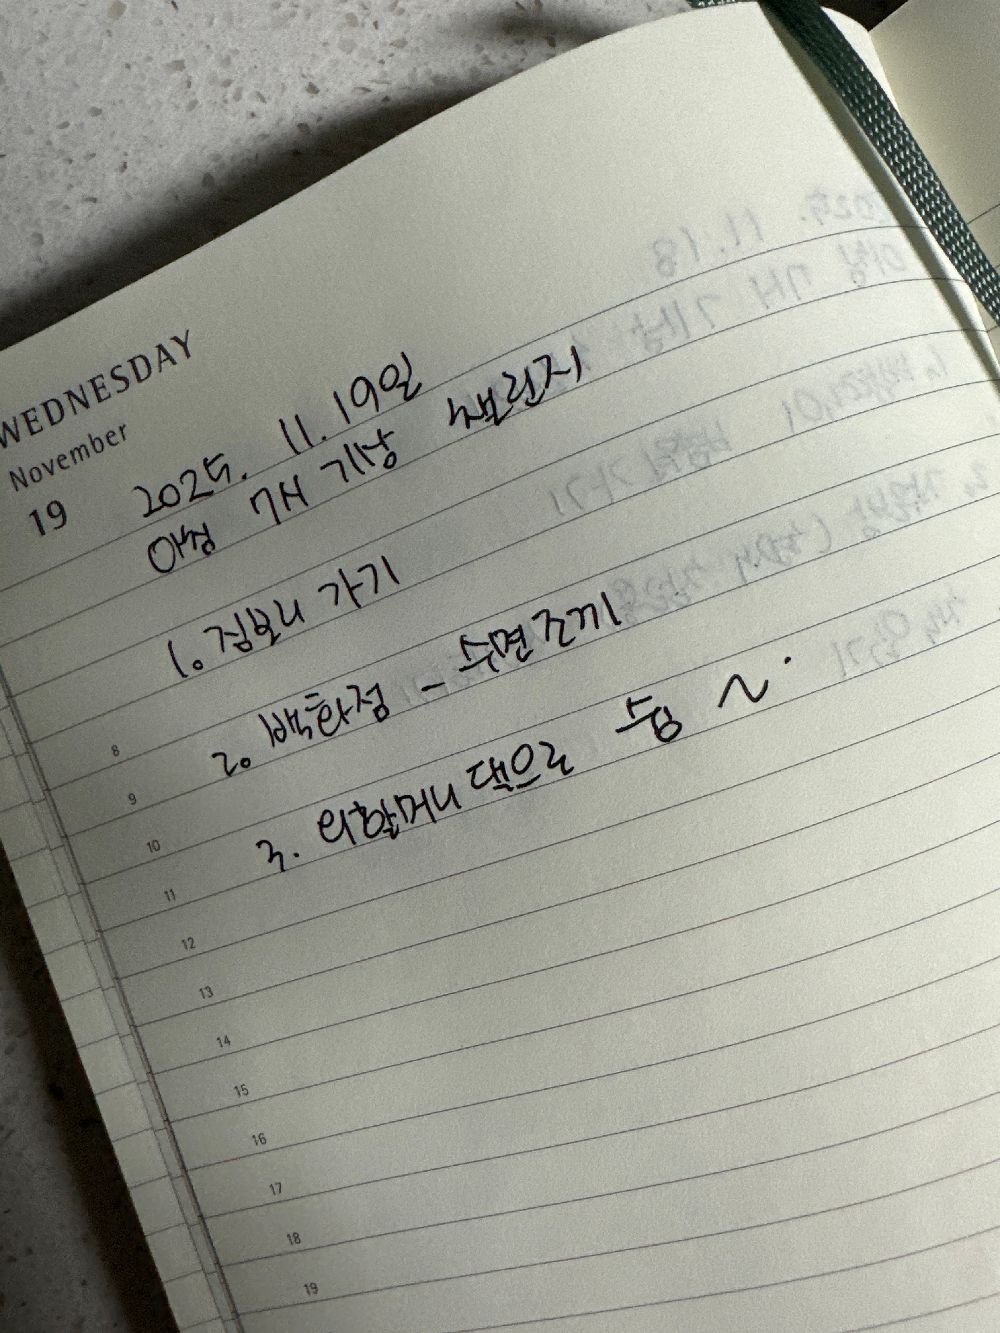 WEDNESDAY
November
19
2025. 11. 19일
아침 7시 기상 챌린지
1. 점보니 가기
2. 백화점 - 수면조끼
3. 외할머니 댁으로 슝 ~.
8
9
10
11
12
13
14
15
16
17
18
19